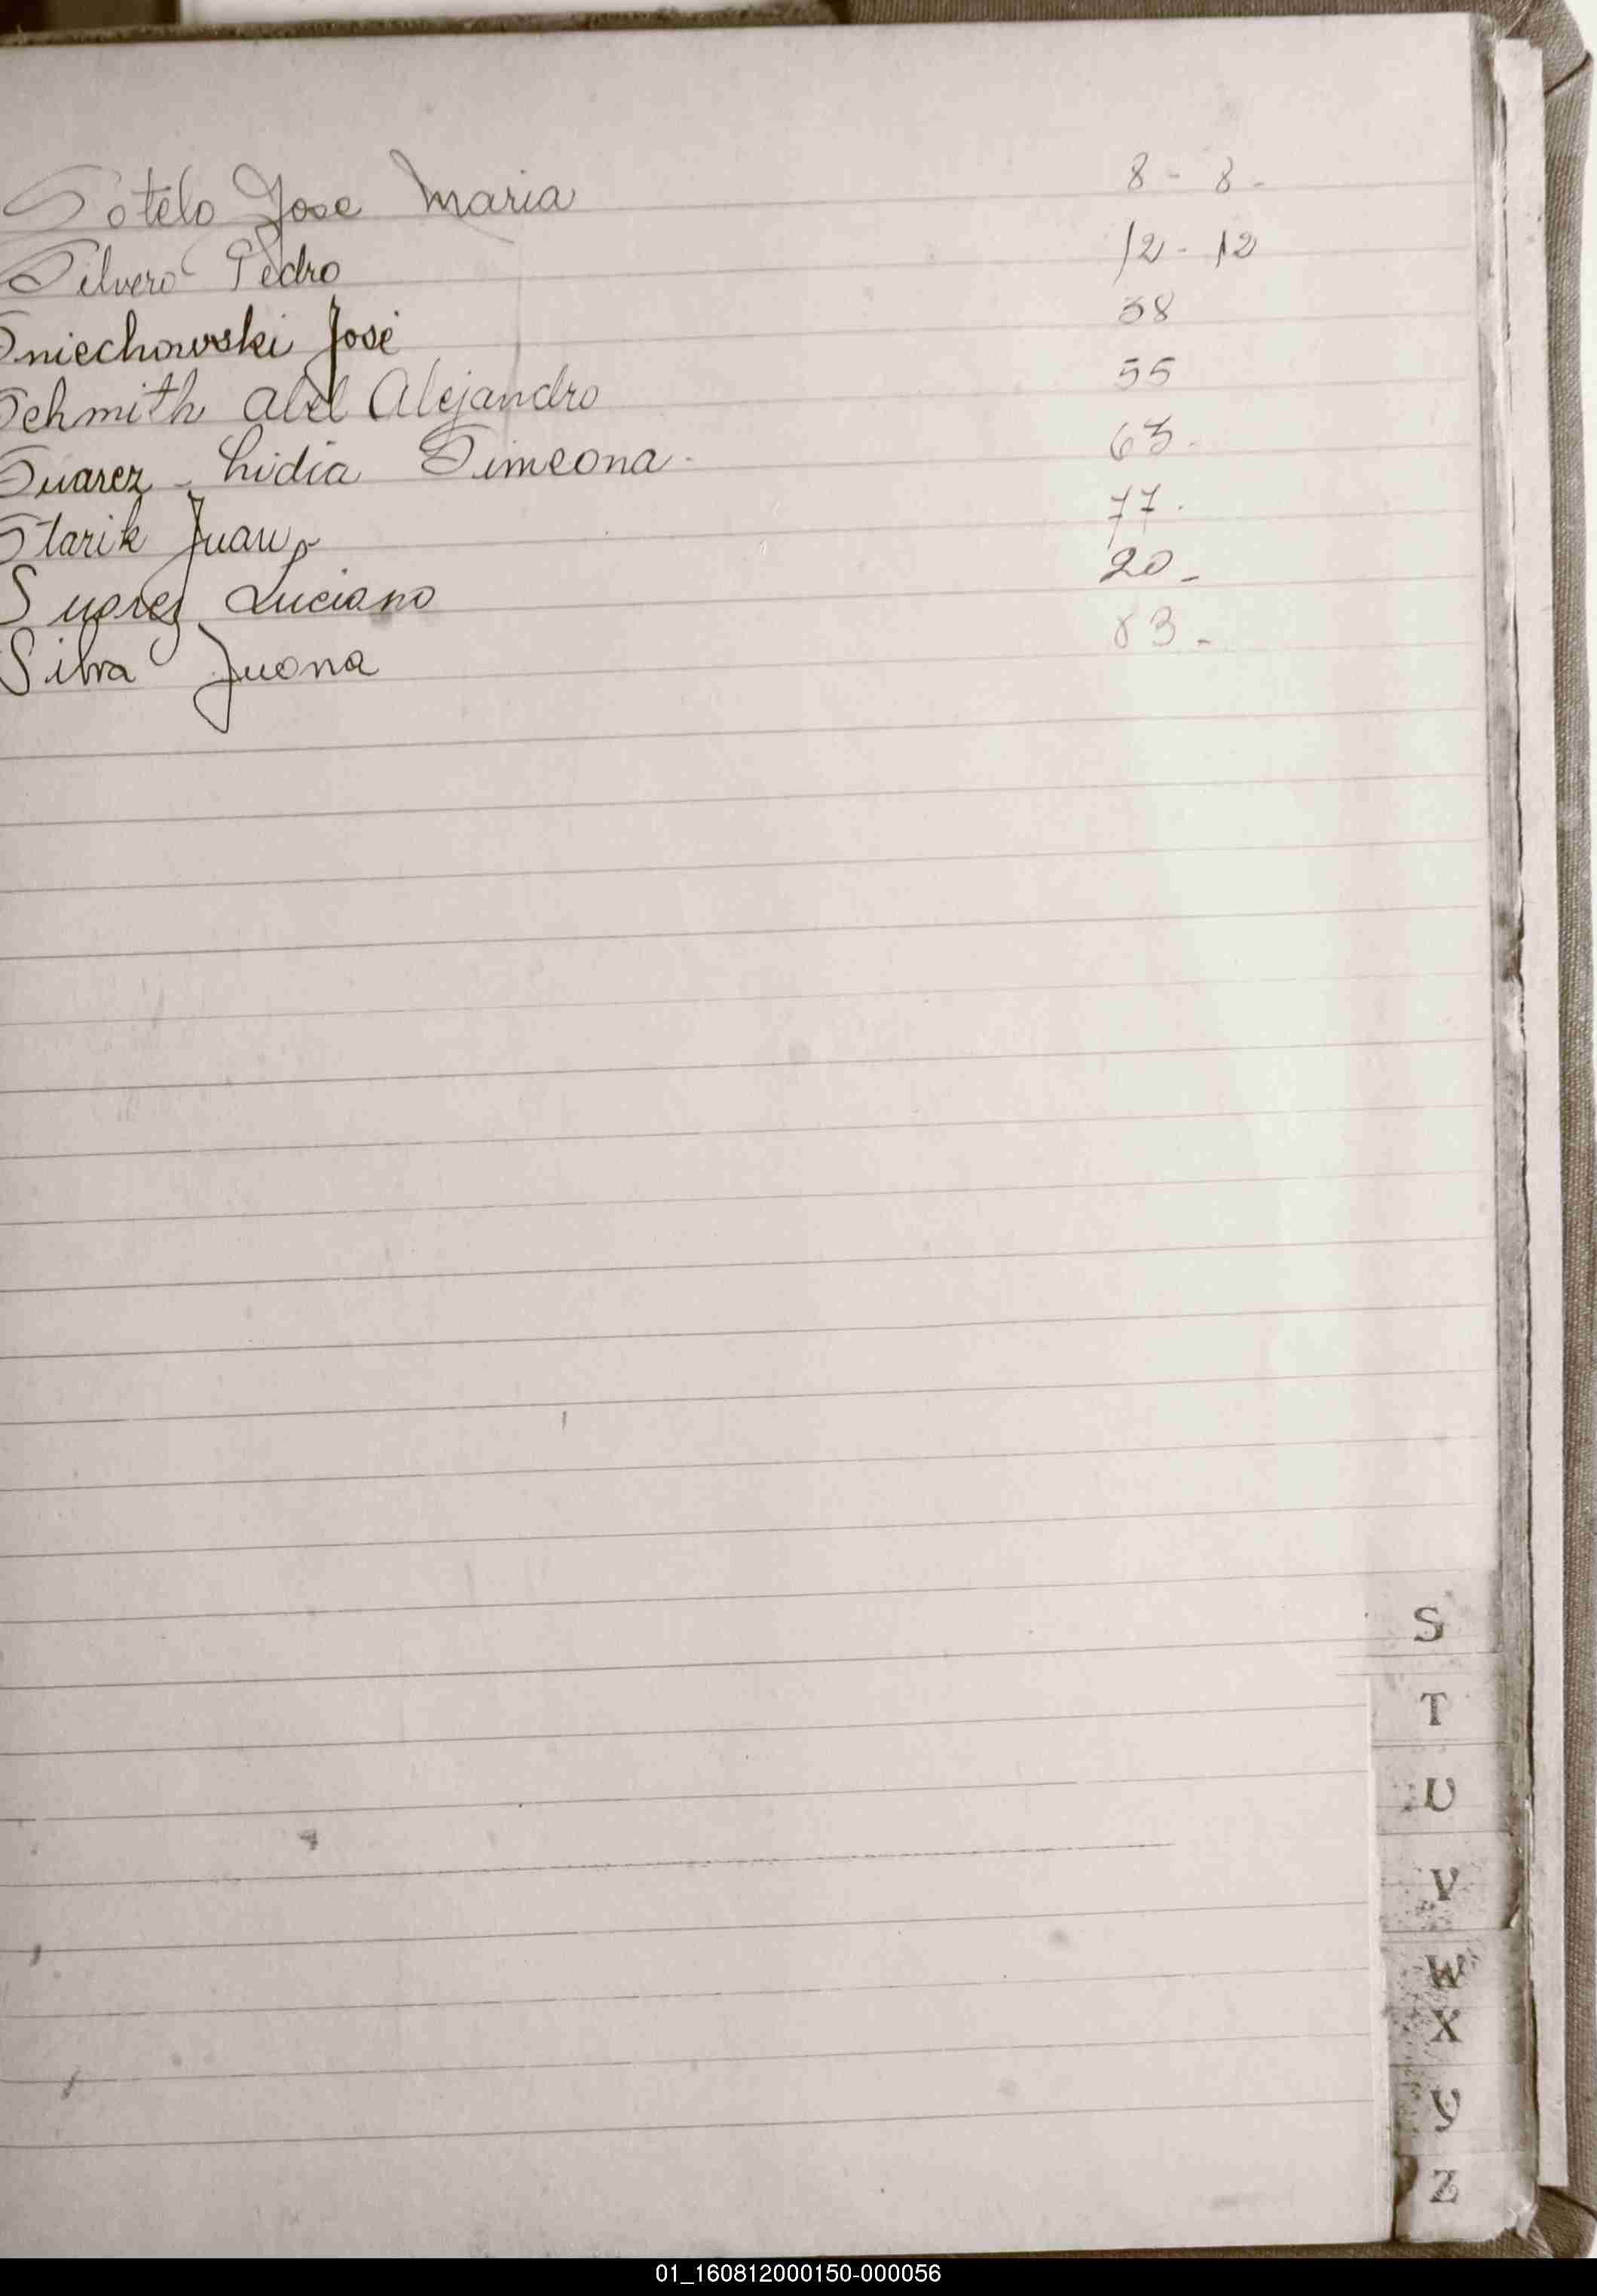 Sotelo Jose Maria 8 - 8 -
Silvero Pedro 12 - 12
Sniechowski José 38
Schmith Abel Alejandro 55
Suarez - Lidia Simeona - 63 -
Starik Juan 77 -
Suarez Luciano 20 -
Silva Juana 83 -
S
T
U
V
W
X
Y
Z
01_160812000150-000056